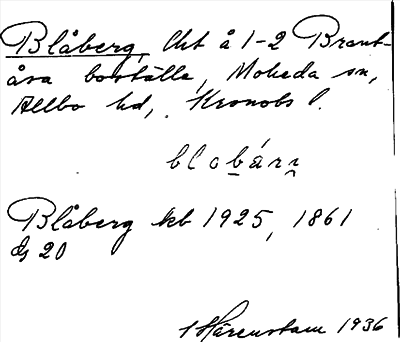 Blåberg, lht å 1-2 Brant-
åsa boställe, Moheda sn,
Allbo hd, Kronobs l.
blobárı
Blåberg kb 1925, 1861
20
Härenstam 1936